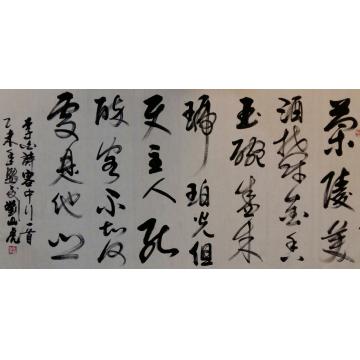 蘭陵美
酒鬱金香
玉碗盛來
琥珀光但
使主人能
醉客不知何
處是他鄉
李白詩客中行一首
乙未年劉